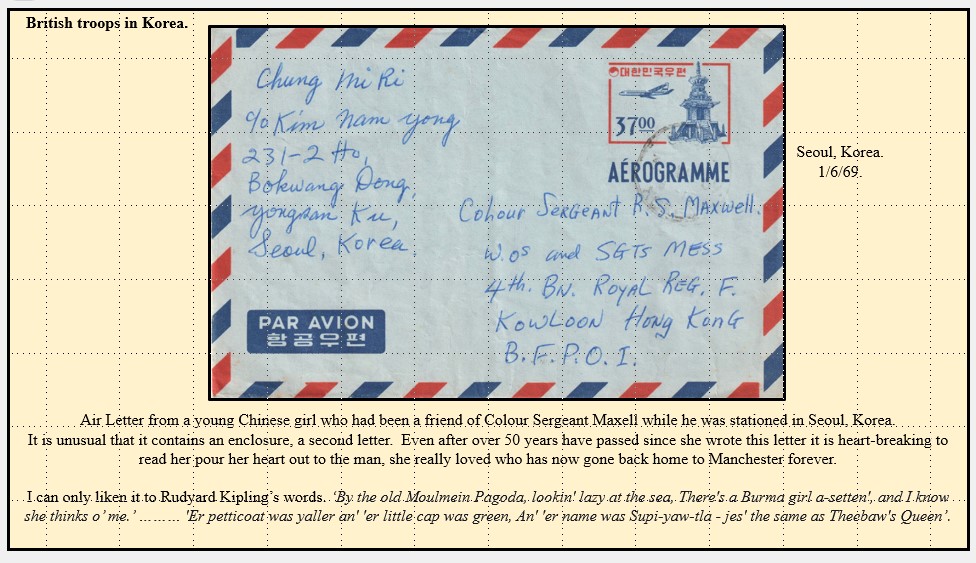 British troops in Korea.
Chung Mi Ri
c/o Kim Nam yong
231-2 Ho,
Bokwang Dong,
yongsan Ku,
Seoul, Korea.
대한민국우편
3700
AÉROGRAMME
Seoul, Korea.
1/6/69.
Colour Sergeant R.S. Maxwell.
W.Os and SGTs MESS
4th. BN. ROYAL REG. F.
KOWLOON HONG KONG
B.F.P.O.I.
PAR AVION
항공우편
Air Letter from a young Chinese girl who had been a friend of Colour Sergeant Maxell while he was stationed in Seoul, Korea.
It is unusual that it contains an enclosure, a second letter. Even after over 50 years have passed since she wrote this letter it is heart-breaking to
read her pour her heart out to the man, she really loved who has now gone back home to Manchester forever.
I can only liken it to Rudyard Kipling's words. 'By the old Moulmein Pagoda, lookin' lazy at the sea, There's a Burma girl a-setten', and I know
she thinks o' me.' ……… 'Er petticoat was yaller an' 'er little cap was green, An' 'er name was Supi-yaw-tla - jes' the same as Theebaw's Queen'.